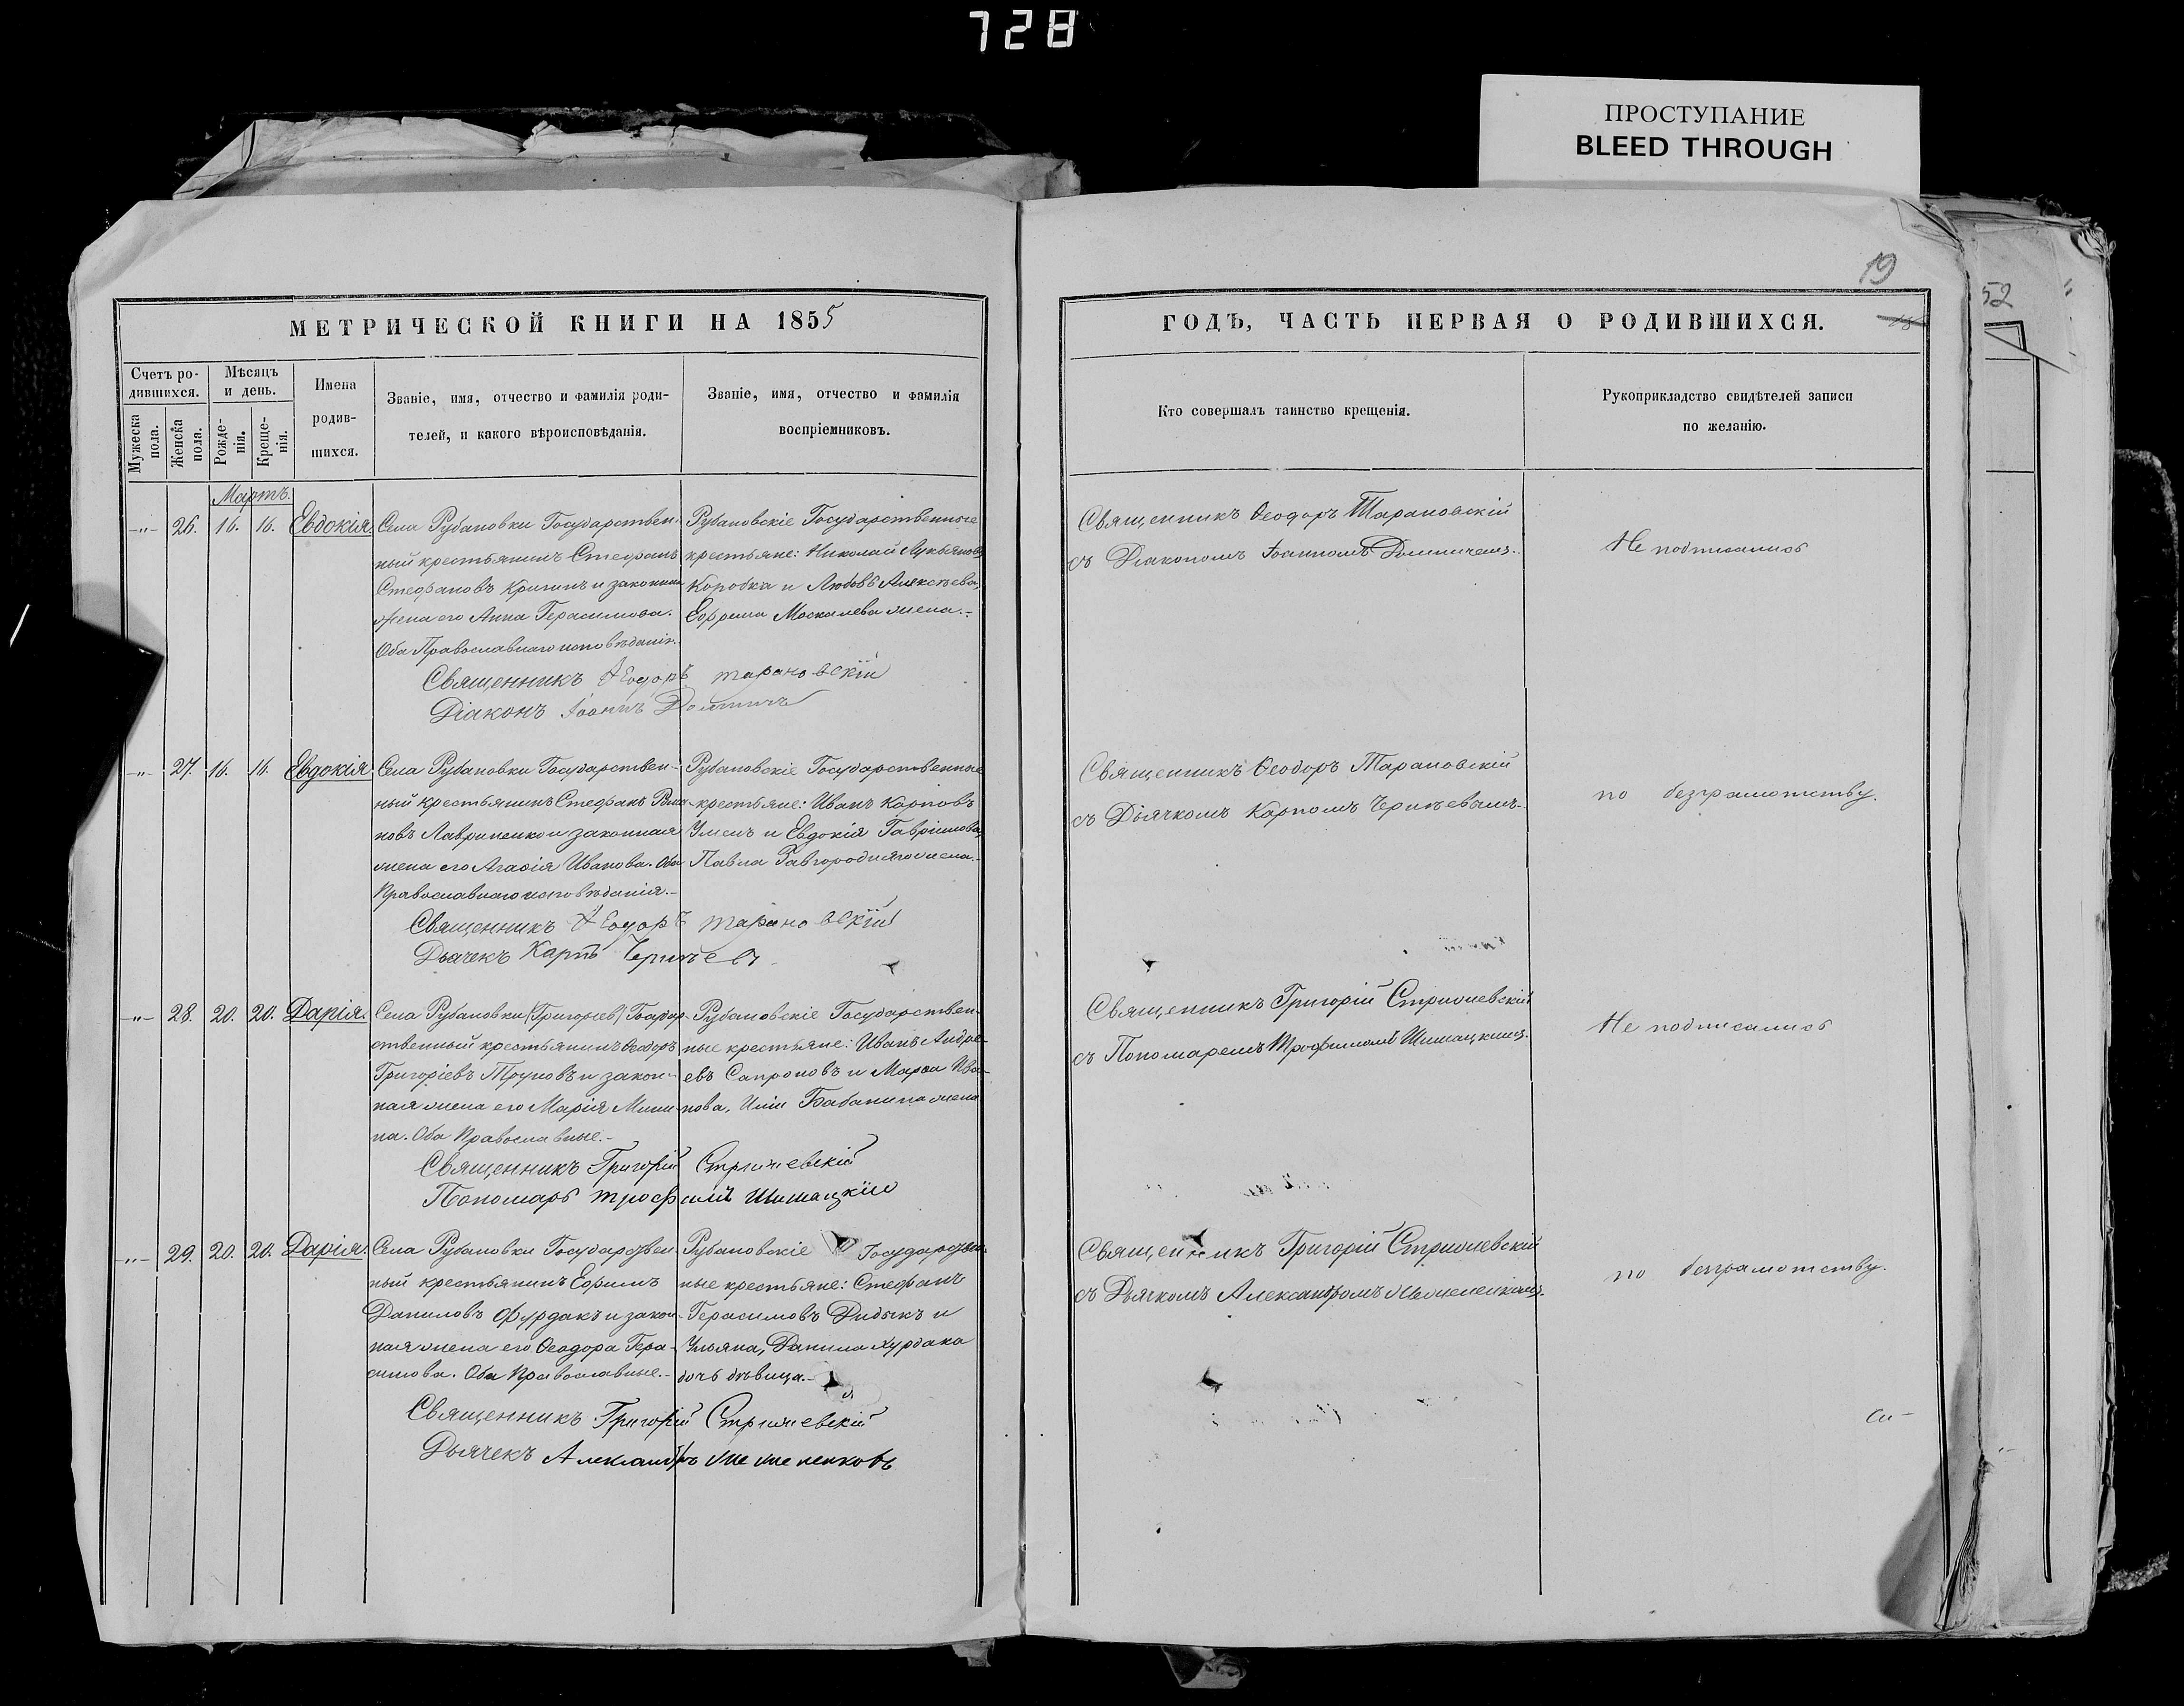 728
ПРОСТУПАНИЕ
BLEED THROUGH
19
52
МЕТРИЧЕСКОЙ КНИГИ НА 1855
Счетъ ро-
дившихся.
Мужеска пола.
Женска пола.
Мѣсяцъ
и день.
Рожде-
нія.
Креще-
нія.
Имена
родив-
шихся.
Званіе, имя, отчество и фамилія роди-
телей, и какого вѣроисповѣданія.
Званіе, имя, отчество и фамилія
воспріемниковъ.
Мартъ.
-"- 26. 16. 16. Евдокія.
Села Рубановки Государствен-
ный крестьянинъ Стефанъ
Стефановъ и законная
жена его Анна Герасимова.
Оба Православнаго исповѣданія.
Рубановскіе Государственные
крестьяне: Николай Лукьяновъ
Коробка и Любовь Алексѣева,
Ефрема Москалева жена.-
Священникъ Ѳеодоръ Тарановскій
Діаконъ Іоаннъ
-"- 27. 16. 16. Евдокія.
Села Рубановки Государствен-
ный крестьянинъ Стефанъ
новъ Лавриненко и законная
жена его Агафія Иванова. Оба
Православнаго исповѣданія.-
Рубановскіе Государственные
крестьяне: Иванъ Карповъ
и Евдокія Гавріилова,
Павла Завгородняго жена.-
Священникъ Ѳеодоръ Тарановскій
Дьячекъ Карпъ
-"- 28. 20. 20. Дарія.
Села Рубановки (Григорьев)
ственный крестьянинъ Ѳеодоръ
Григоріевъ Труновъ и закон-
ная жена его Марія Мини-
на. Оба Православные.-
Рубановскіе Государствен-
ные крестьяне: Иванъ Андре-
евъ Сапроновъ и Марфа Ива-
нова, Иліи Бабанина жена
Священникъ Григорій Стрижевскій
Пономарь Трофимъ Шишацкій
-"- 29. 20. 20. Дарія.
Села Рубановки Государствен-
ный крестьянинъ Ефимъ
Даниловъ Фурдакъ и закон-
ная жена его Ѳеодора Гера-
симова. Оба Православные.-
Рубановскіе Государствен-
ные крестьяне: Стефанъ
Герасимовъ Дидыкъ и
Ульяна, Данила Хурдака
дочь дѣвица.-
Священникъ Григорій Стрижевскій
Дьячекъ Александръ
ГОДЪ, ЧАСТЬ ПЕРВАЯ О РОДИВШИХСЯ.
Кто совершалъ таинство крещенія.
Рукоприкладство свидѣтелей записи
по желанію.
Священникъ Ѳеодоръ Тарановскій
съ Діакономъ Іоанномъ
Не подписались
Священникъ Ѳеодоръ Тарановскій
съ Дьячкомъ Карпомъ
по безграмотству.
Священникъ Григорій Стрижевскій
съ Пономаремъ Трофимомъ Шишацкимъ.
Не подписались
Священникъ Григорій Стрижевскій
съ Дьячкомъ Александромъ
по безграмотству.